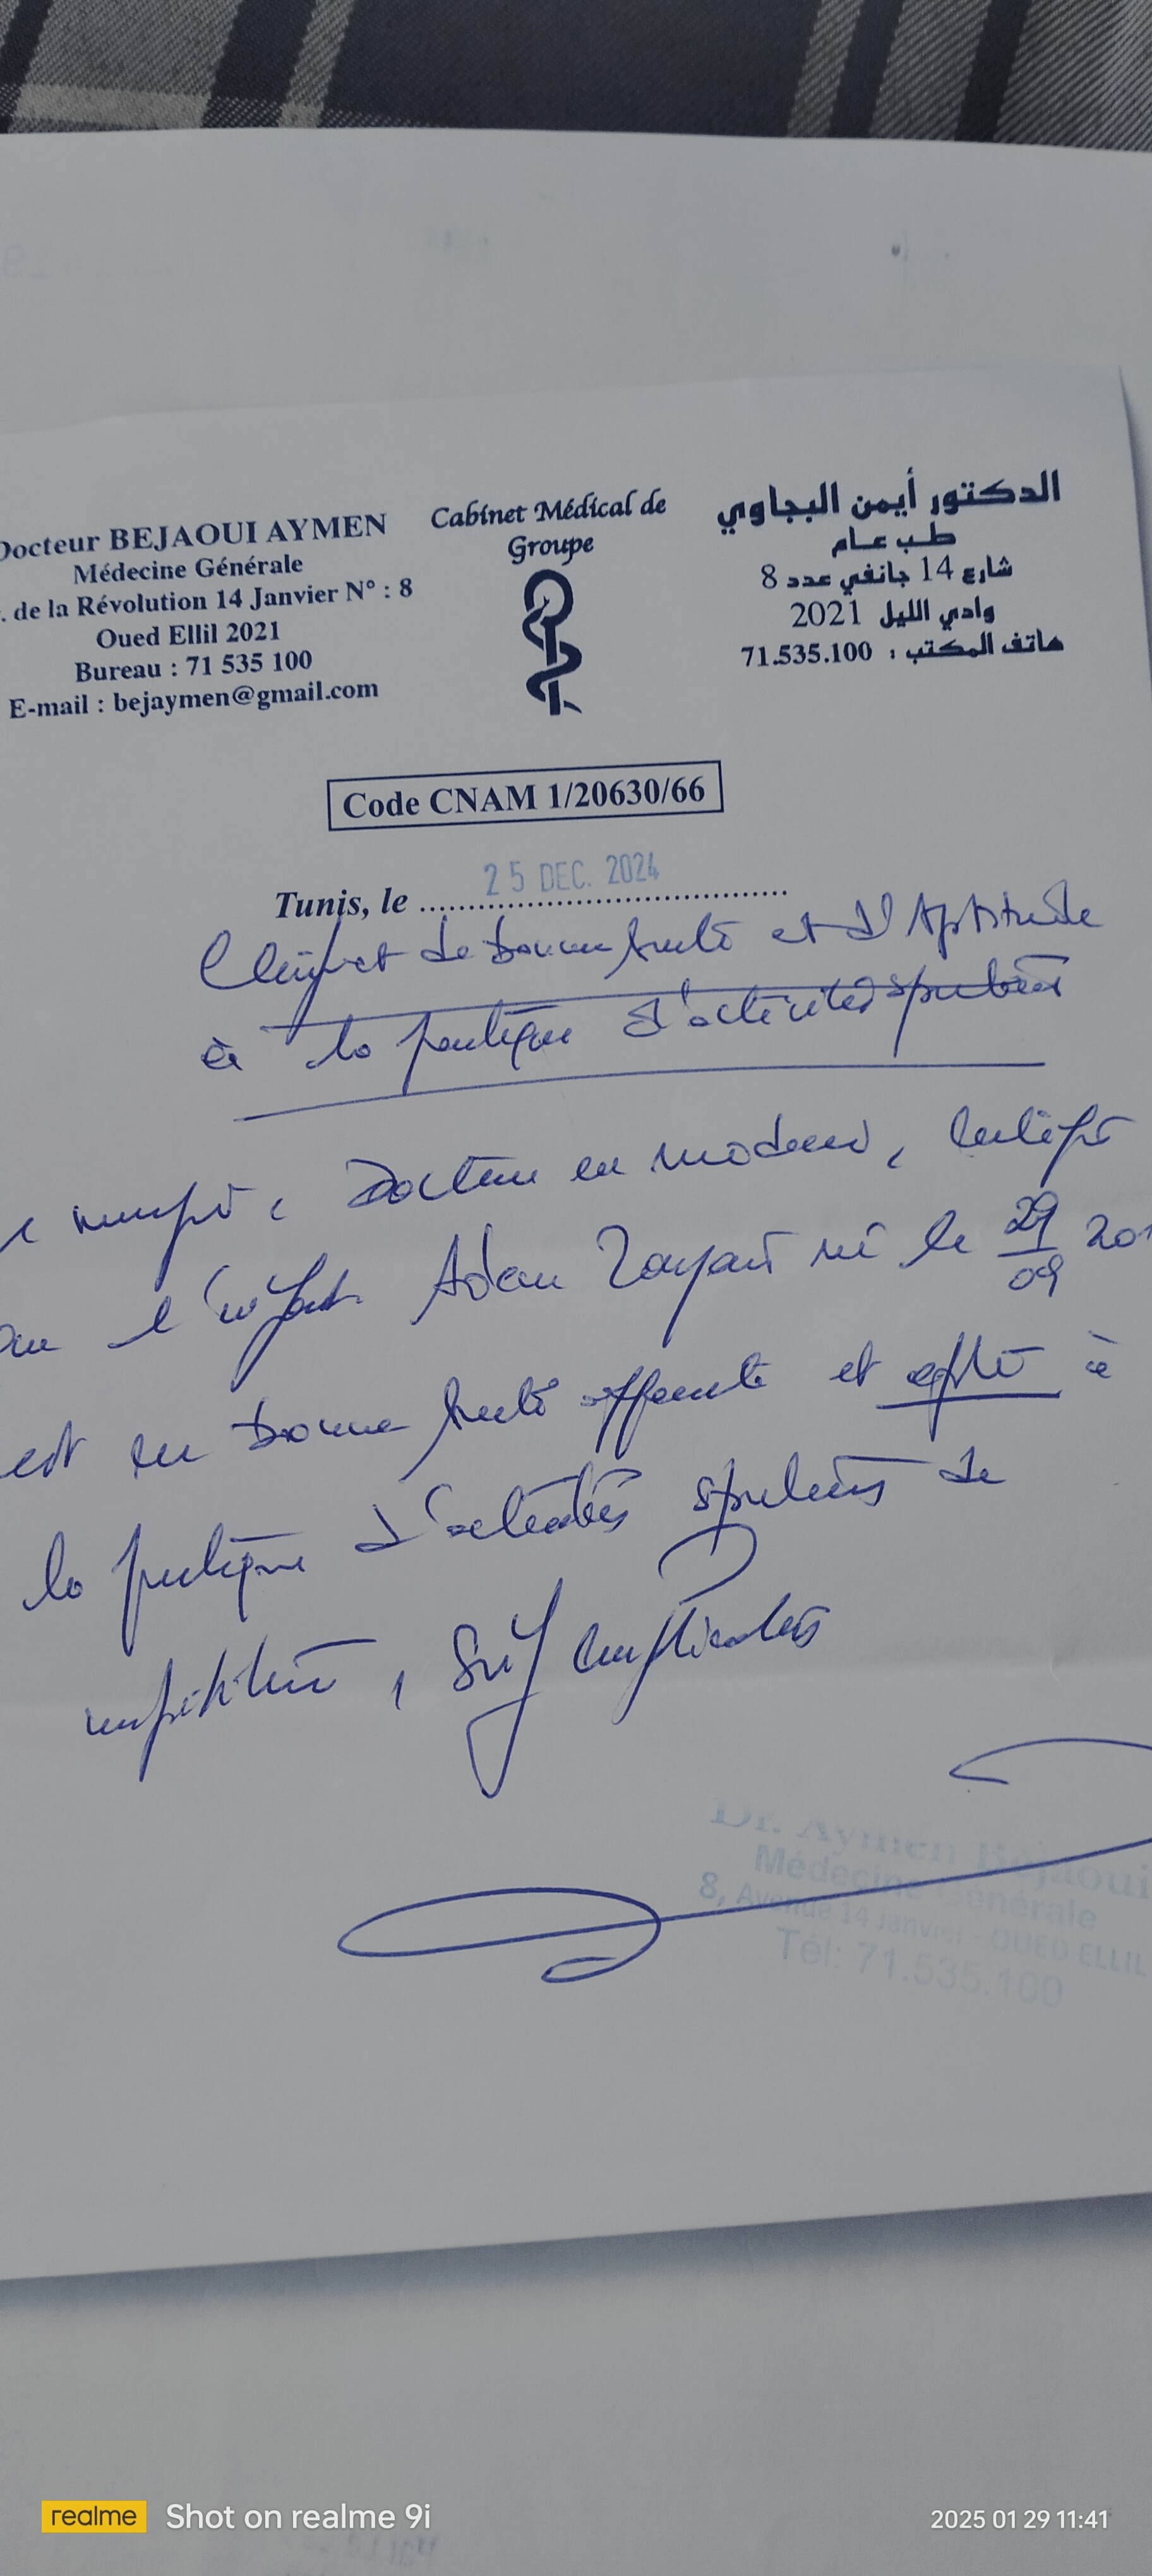 Docteur BEJAOUI AYMEN
Médecine Générale
. de la Révolution 14 Janvier N° : 8
Oued Ellil 2021
Bureau : 71 535 100
E-mail : bejaymen@gmail.com
Cabinet Médical de
Groupe
الدكتور أيمن البجاوي
طب عام
شارع 14 جانفي عدد 8
وادي الليل 2021
هاتف المكتب : 71.535.100
Code CNAM 1/20630/66
Tunis, le 25 DEC. 2024
Certificat de bonne santé et d'Aptitude
à la pratique d'activités sportives
Docteur en médecine, certifie
que l'enfant Adam né le 29/09 201
est en bonne santé apparente et apte à
la pratique d'activités sportives de
compétition, sauf complications
Dr. Aymen Bejaoui
Médecine Générale
8, Avenue 14 Janvier - OUED ELLIL
Tél: 71.535.100
realme Shot on realme 9i
2025 01 29 11:41